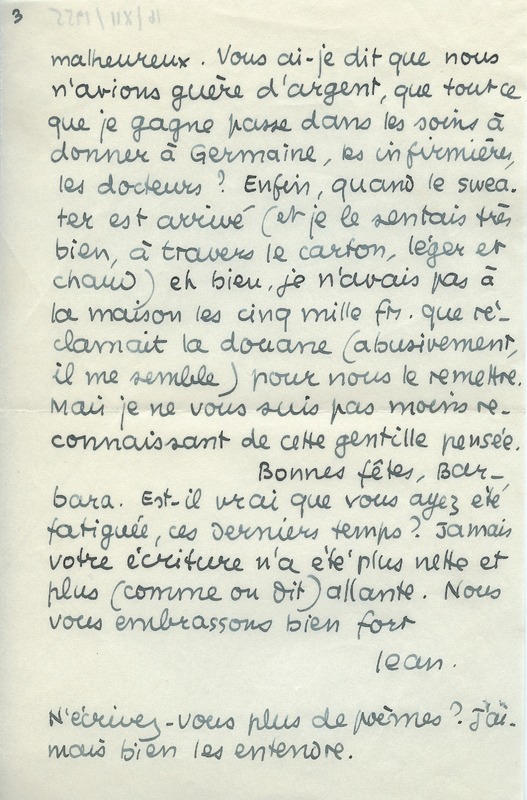 3
16/XII/1955
malheureux. Vous ai-je dit que nous
n'avions guère d'argent, que tout ce
que je gagne passe dans les soins à
donner à Germaine, les infirmières,
les docteurs ? Enfin, quand le swea-
ter est arrivé (et je le sentais très
bien, à travers le carton, léger et
chaud) eh bien, je n'avais pas à
la maison les cinq mille fr. que ré-
clamait la douane (abusivement,
il me semble) pour nous le remettre.
Mais je ne vous suis pas moins re-
connaissant de cette gentille pensée.
Bonnes fêtes, Bar-
bara. Est-il vrai que vous ayez été
fatiguée, ces derniers temps ? Jamais
votre écriture n'a été plus nette et
plus (comme on dit) allante. Nous
vous embrassons bien fort
Jean.
N'écrivez-vous plus de poèmes ? J'ai-
mais bien les entendre.